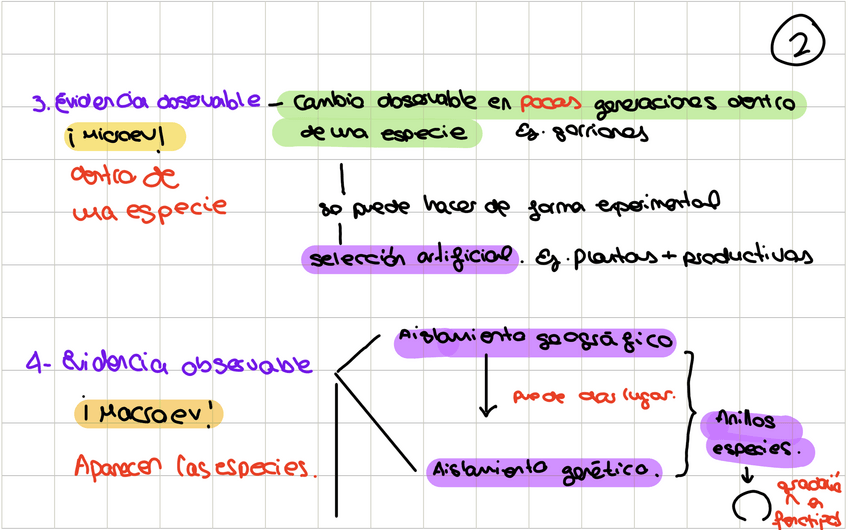 2
3. Evidencia observable - Cambio observable en pocas generaciones dentro
¡Microev!
de una especie Ej. gorriones
dentro de
una especie
se puede hacer de forma experimental
selección artificial. Ej. plantas + productivas
4- Evidencia observable
Aislamiento geográfico
puede dar lugar.
¡Macroev!
Anillos
especies.
Aparecen las especies.
Aislamiento genético.
en